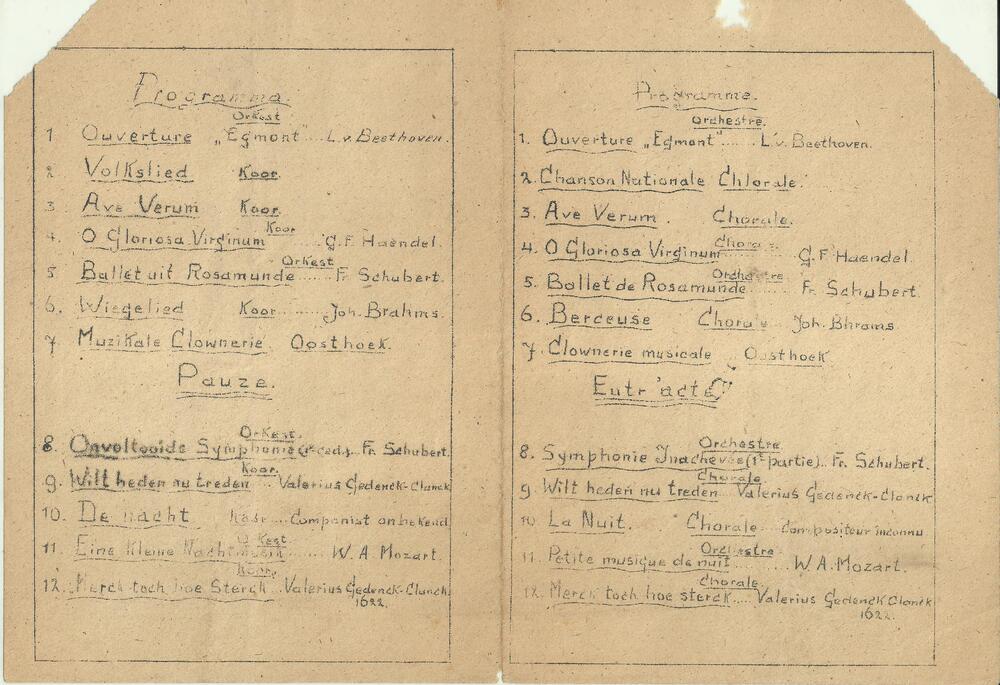 Programma.
Orkest
1. Ouverture „Egmont".... L.v. Beethoven.
2 Volkslied Koor.
3. Ave Verum Koor.
Koor
4. O Gloriosa Virginum ..... G.F. Haendel.
Orkest
5 Ballet uit Rosamunde .... Fr. Schubert.
6. Wiegelied Koor ........ Joh. Brahms.
7 Muzikale Clownerie. Oosthoek.
Pauze.
Orkest.
8. Onvoltooide Symphonie .. Fr. Schubert.
Koor.
9. Wilt heden nu treden Valerius Gedenck-Clanck
10. De nacht Koor .... Componist onbekend
Orkest
11. Eine Kleine Nachtmusik ...... W.A. Mozart.
Koor.
12. Merck toch hoe Sterck .. Valerius Gedenck-Clanck
1622.
Programme.
Orchestre.
1. Ouverture „Egmont"...... L.v. Beethoven.
2. Chanson Nationale Chlorale.
3. Ave Verum. Chorale.
4. O Gloriosa Virginum ........ G.F Haendel.
Orchestre
5. Ballet de Rosamunde ...... Fr. Schubert.
6. Berceuse Chorale Joh. Bhrams
7. Clownerie musicale .. Oosthoek
Eutr'acte
Orchestre
8. Symphonie Inachevée (1e partie).. Fr. Schubert.
Chorale
9. Wilt heden nu treden Valerius Gedenck-Clanck
10 La Nuit. Chorale .... compositeur inconnu
Orchestre
11. Petite musique de nuit ........ W.A. Mozart.
Chorale.
12. Merck toch hoe sterck .... Valerius Gedenck Clanck
1622.